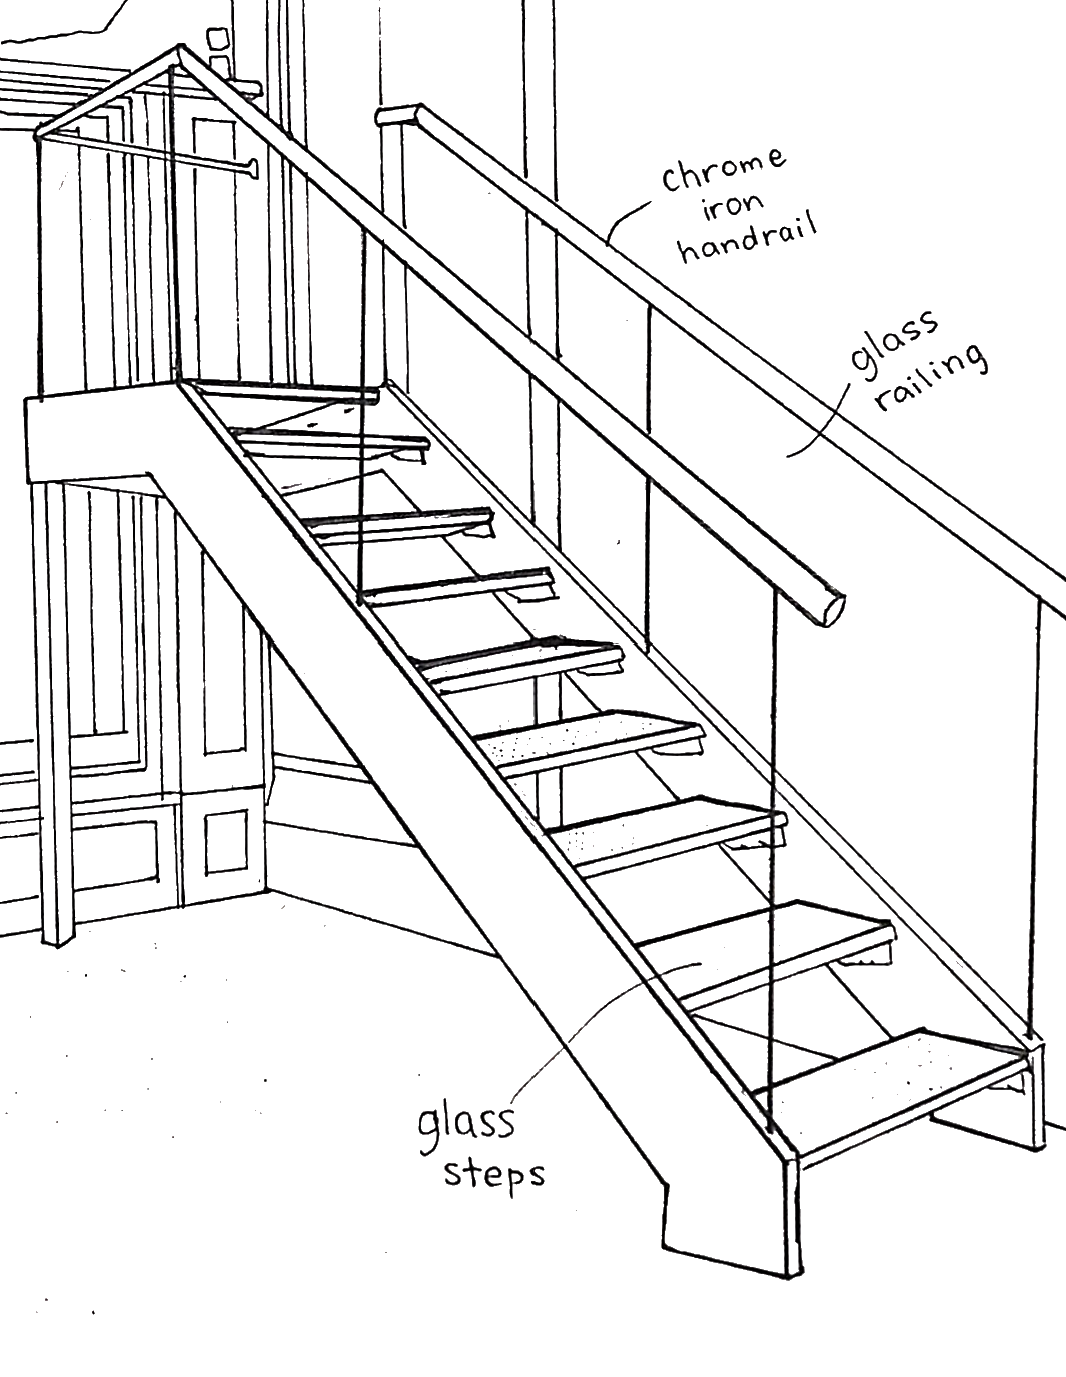 chrome
iron
handrail
glass
railing
glass
steps